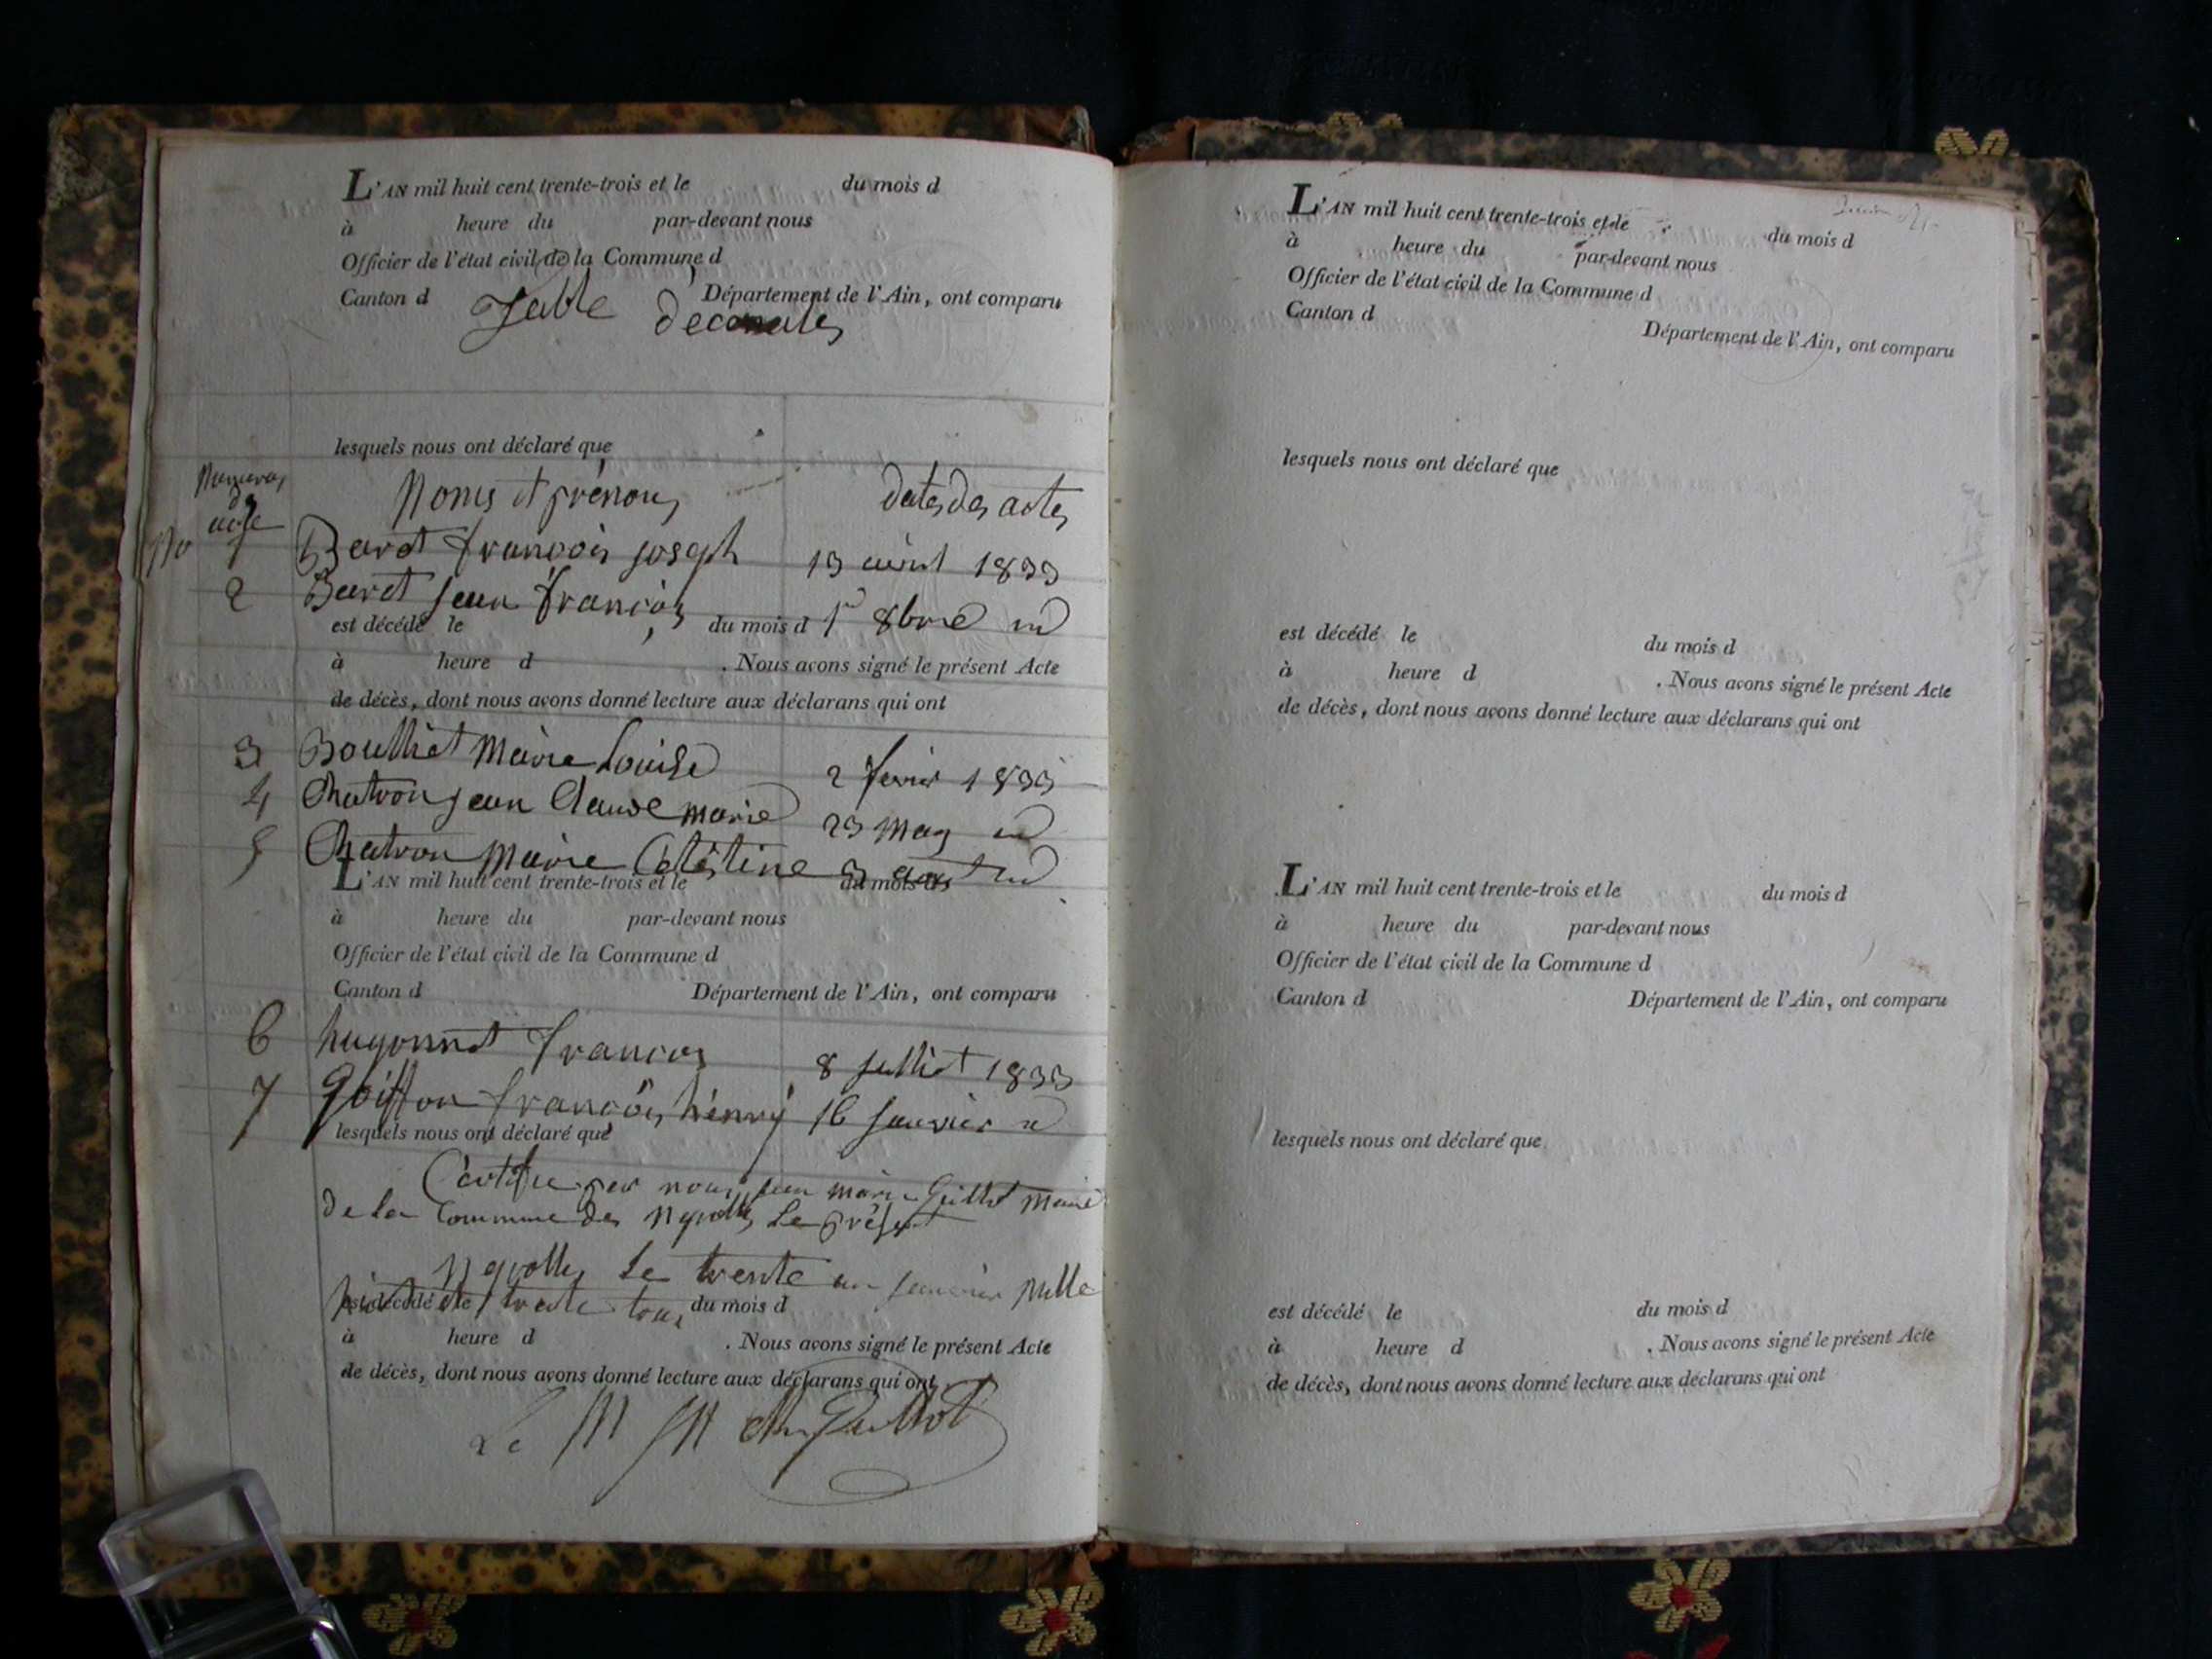 L'AN mil huit cent trente-trois et le du mois d
à heure du par-devant nous
Officier de l'état civil de la Commune d
Canton d Département de l'Ain, ont comparu
Table
lesquels nous ont déclaré que
Noms et prénoms dates des actes
No 1 Baret françois joseph 13 avril 1833
2 Baret jean françois 1er 8bre id
est décédé le du mois d
à heure d . Nous avons signé le présent Acte
de décès, dont nous avons donné lecture aux déclarans qui ont
3 Boulliet Marie Louise 2 fevrier 1833
4 Chatron jean Claude marie 23 may id
5 Chatron Marie Célestine 3 id
L'AN mil huit cent trente-trois et le du mois d
à heure du par-devant nous
Officier de l'état civil de la Commune d
Canton d Département de l'Ain, ont comparu
6 hugonnet françois 8 julliet 1833
7 goiffon françois hènry 16 janvier id
lesquels nous ont déclaré que
Certifie par nous jean marie Guillot maire
de la Commune de Neyrolles Le présent
Neyrolles Le trente un janvier mille
huit cent trente
est décédé le du mois d
à heure d . Nous avons signé le présent Acte
de décès, dont nous avons donné lecture aux déclarans qui ont
Le M Guillot
L'AN mil huit cent trente-trois et le du mois d
à heure du par-devant nous
Officier de l'état civil de la Commune d
Canton d
Département de l'Ain, ont comparu
lesquels nous ont déclaré que
est décédé le du mois d
à heure d . Nous avons signé le présent Acte
de décès, dont nous avons donné lecture aux déclarans qui ont
L'AN mil huit cent trente-trois et le du mois d
à heure du par-devant nous
Officier de l'état civil de la Commune d
Canton d Département de l'Ain, ont comparu
lesquels nous ont déclaré que
est décédé le du mois d
à heure d . Nous avons signé le présent Acte
de décès, dont nous avons donné lecture aux déclarans qui ont